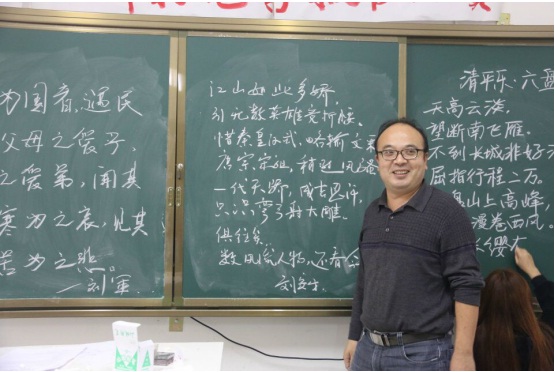 为国者,遇民
父母之爱子,
之爱弟,闻其
寒为之哀,见其
为之悲。
一刘军
江山如此多娇,
引无数英雄竞折腰。
惜秦皇汉武,略输文
唐宗宋祖,稍逊风
一代天骄,成吉思汗,
只识弯弓射大雕。
俱往矣,
数风流人物,还看
清平乐·六盘
天高云淡,
望断南飞雁。
不到长城非好
屈指行程二万。
山上高峰,
漫卷西风。
缨